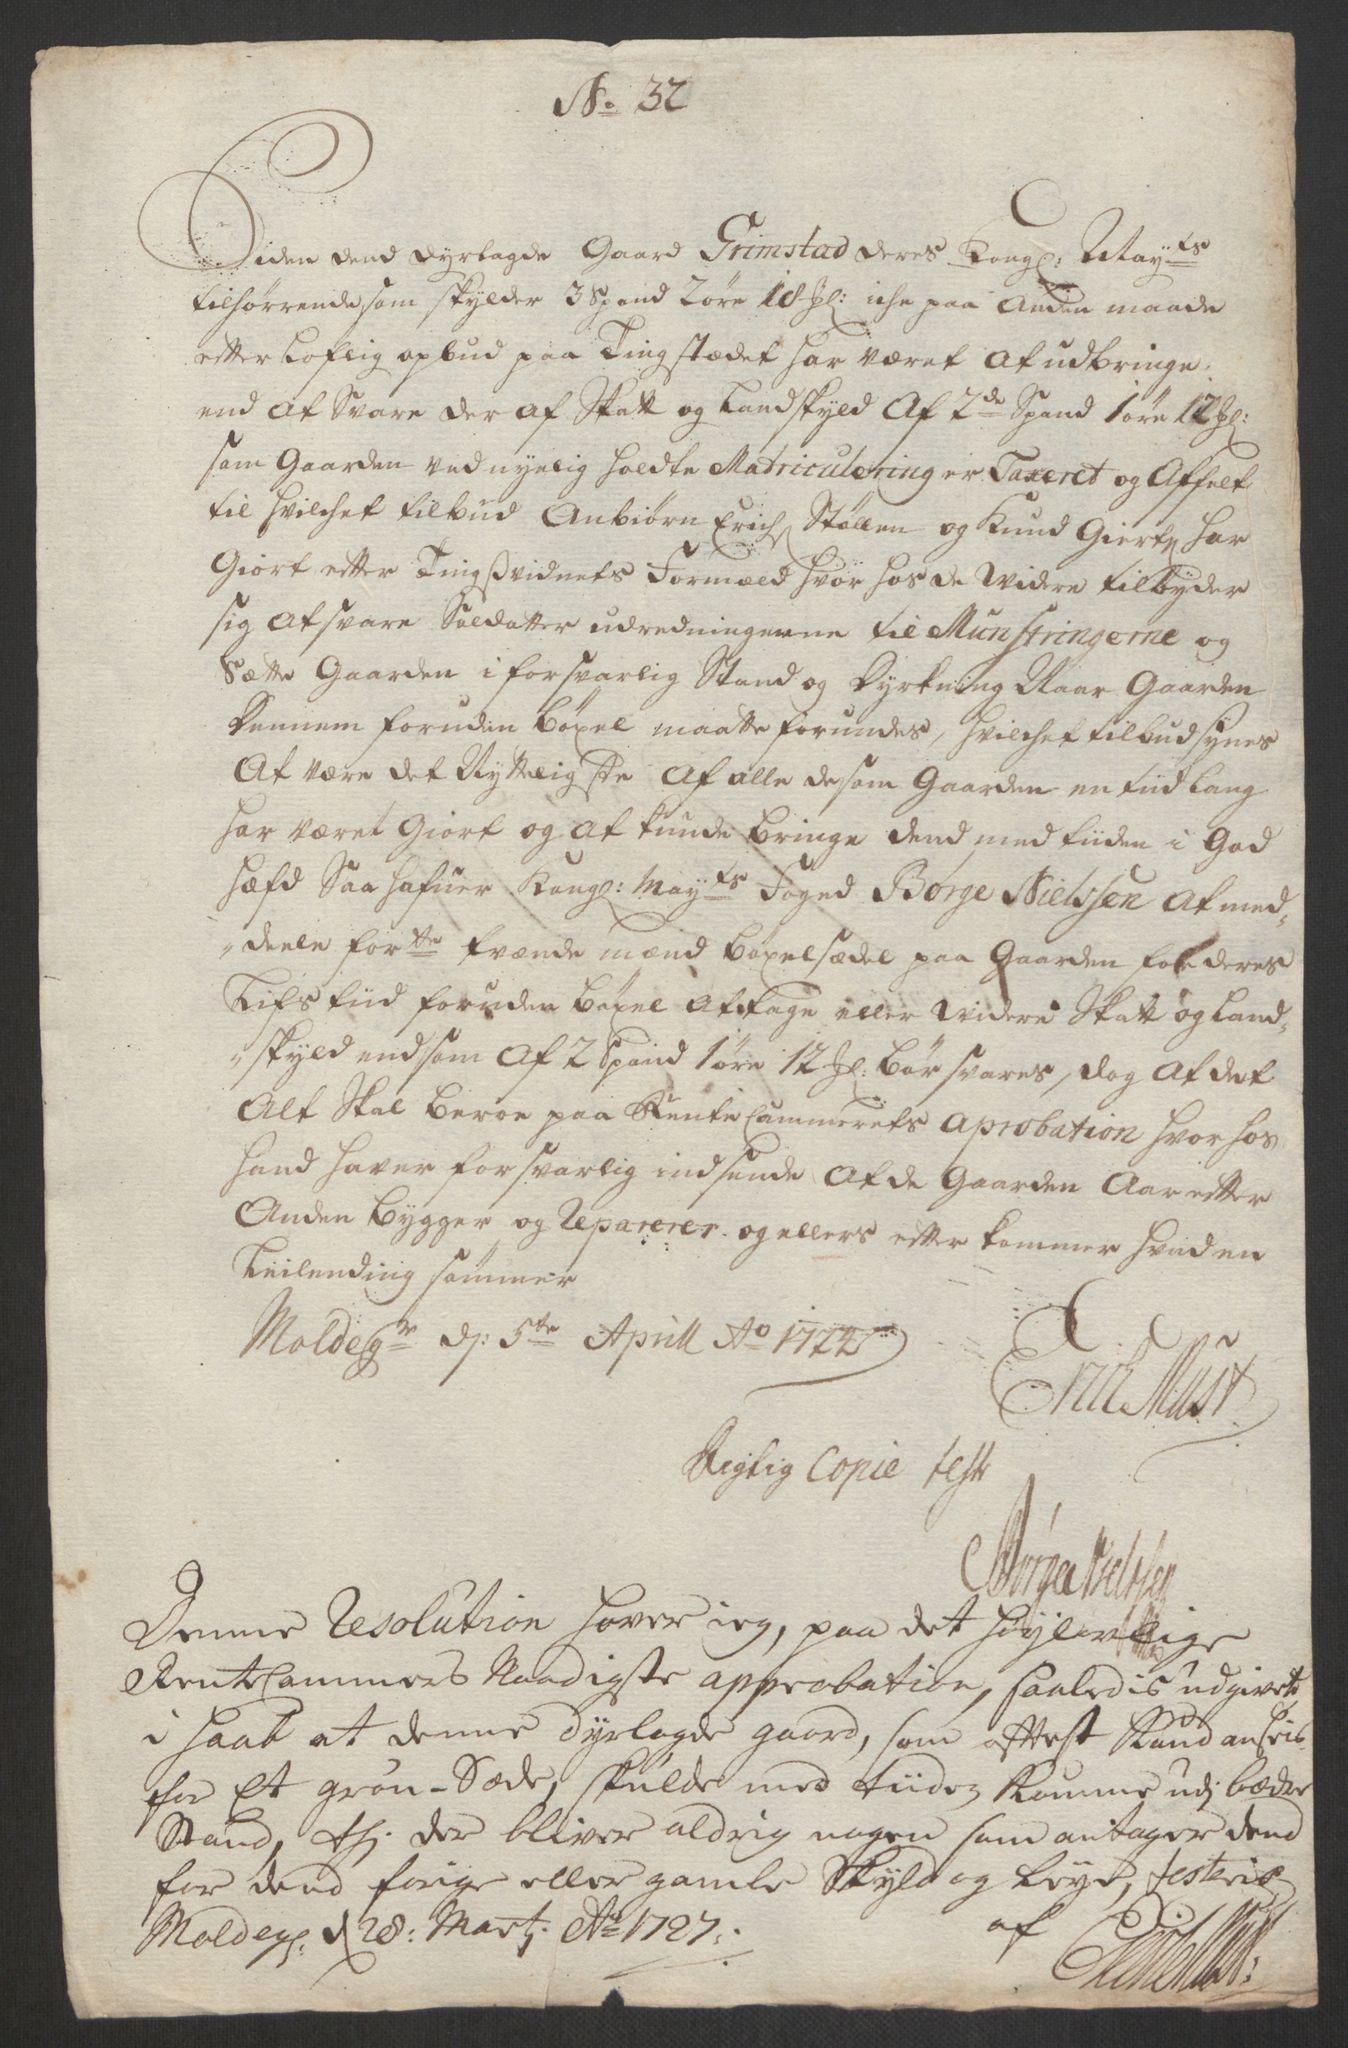 No. 32
Siden dend Ødelagde Gaard Grimstad deres Kongl: Mayts
tilhørrende, som skylder 3 Spand 2 øre 18 Ml: iche paa Anden maade
efter loflig opbud paa Tingstædet har været At udbringe,
end At Svare der af Skatt og Landskyld Af 2de Spand 1 øre 12 Ml:
som Gaarden ved nyelig holdte Matriculering er Taxeret og Affelt
til hvilchet tilbud Anbiørn Erichs Støllen og Knud Gierts har
Giort efter Tingsvidnets Formæld hvor hos de Widere tilbyder
sig At svare Soldatter udredningerne til Munstringerne og
Sætte Gaarden i forsvarlig Stand og Dyrkning Naar Gaarden
Dennem foruden Böxel maatte forundes, hvilchet tilbud synes
At være det Nyttligste Af alle de som Gaarden en tiid lang
har været Giort og at kunde bringe dend med tiiden i God
hæfd Saa hafuer Kongl: Mayts Foged Børge Nielssen At med-
deele forte tvende mænd böxelsædel paa Gaarden for deres
Lifs tiid foruden böxel At tage eller Widere Skatt og Land-
skyld end som Af 2 Spand 1 øre 12 Ml: bør svares, dog At det
Alt Skal beroe paa Rente Cammerets Aprobation hvor hos
hand haver forsvarlig indseende At de Gaarden Aar efter
Anden bygger og Reparerer og ellers efter kommer hvad en
Leilending sømmer
Moldegr d: 5te Aprill Ao 1724
Erich Must
Rigtig Copie test
Børge Nielssen
Denne Resolution hafver ieg, paa det høylovlige
RenteCammers Naadigste approbation, saaledis udgivet
i haab at denne Ødelagde gaard, som oftest Kand ansees
for Et grøn-Sæde, skulde med tiiden komme udj bædre
Stand, thj der bliver aldrig nogen som antager dend
for dend forige eller gamle Skyld og Leye, testeris
Moldegr. d 28: Martj Ao 1727. af
Erich Must